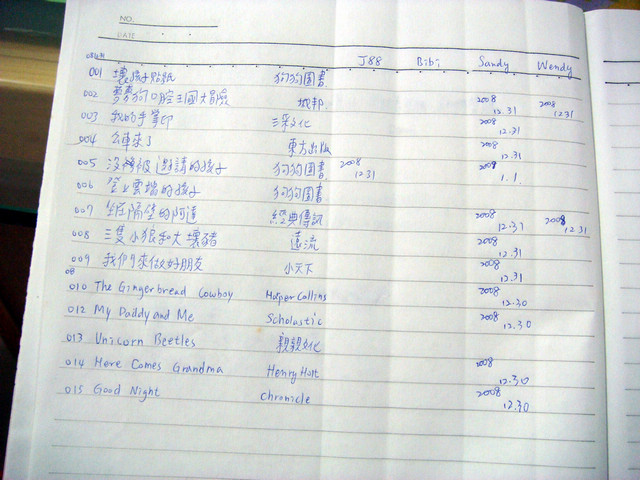 NO.
DATE
J88 Bibi Sandy Wendy
001 壞孩子貼紙 狗狗圖書
002 夢夢狗口腔王國大冒險 城邦 2008 12.31 2008 12.31
003 我的手掌印 三采文化 2008 12.31
004 公車來了 東方出版 2008 12.31
005 沒被邀請的孩子 狗狗圖書 2008 12.31 2008 1.1.
006 登上雲端的孩子 狗狗圖書
007 坐在隔壁的阿達 經典傳訊 2008 12.31 2008 12.31
008 三隻小狼和大壞豬 遠流 2008 12.31
009 我們來做好朋友 小天下 2008 12.31
010 The Gingerbread Cowboy HarperCollins 2008 12.30
012 My Daddy and Me Scholastic 2008 12.30
013 Unicorn Beetles 親親文化
014 Here Comes Grandma Henry Holt 2008 12.30
015 Good Night Chronicle 2008 12.30